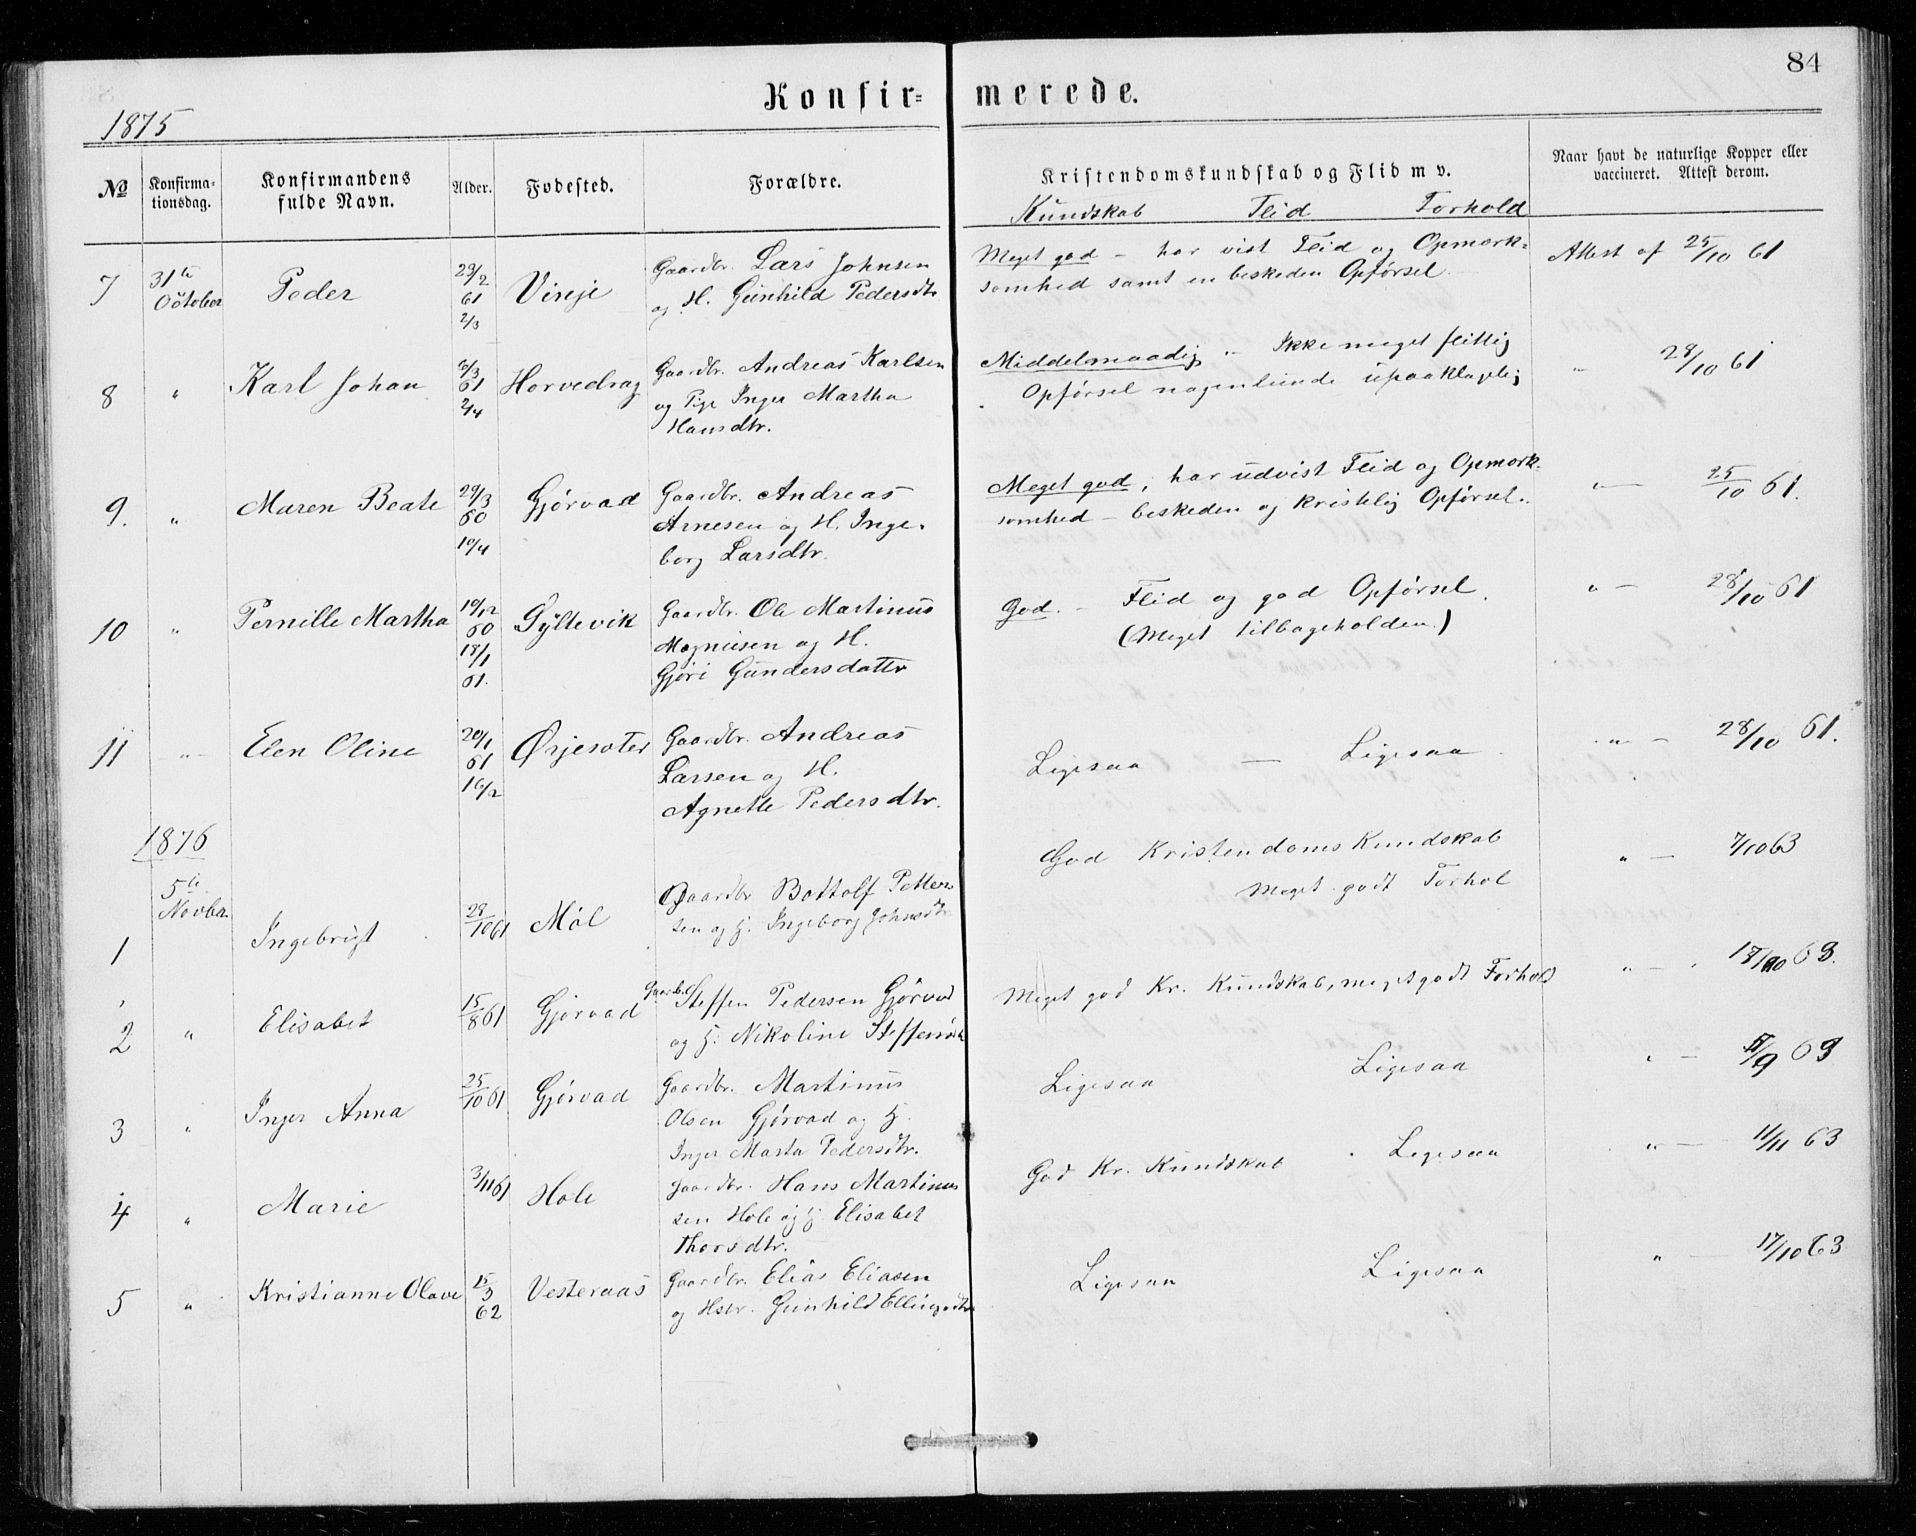 84
Konfir= merede.
1875
No
Konfirma-
tionsdag.
Konfirmandens
fulde Navn.
Alder.
Fødested.
Forældre.
Kristendomskundskab og Flid m v.
Kundskab Flid Forhold
Naar havt de naturlige Kopper eller
vaccineret. Attest derom.
7 31te October Peder 23/2 61 2/3 Vinje
Gaardbr. Lars Johnsen
og H. Gunhild Pedersdtr
Meget god - har vist Flid og Opmærk=
somhed samt en beskeden Opførsel.
Attest af 25/10 61
8 " Karl Johan 61 2/4 Horvedrag
Gaardbr. Andreas Karlsen
og Pige Inger Martha
Hansdtr.
Middelmaadig - Ikke meget flittig
Opførsel nogenlunde upaaklagelig
" 28/10 61
9. " Maren Beate 29/3 60 10/4 Gjørvad
Gaardbr. Andreas
Arnesen og H. Inge-
borg Larsdtr.
Meget god, har udvist Flid og Opmærk-
somhed - beskeden og kristelig Opførsel.
" 25/10 61.
10 " Pernille Martha 10/12 60 18/1 61. Gyltevik
Gaardbr. Ole Martinus
Magnusen og H.
Gjøri Gundersdattr
God. - Flid og god Opførsel.
(Meget tilbageholden.)
" - 28/10 61
11 " Elen Oline 20/1 61 16/2 Ørjesæter
Gaardbr. Andreas
Larsen og H.
Agnette Pedersdtr.
Ligesaa - Ligesaa
" - 28/10 61.
1876
5te Novbr.
1 Ingebrigt 29/10 61 Møl
Gaardbr Bottolf Petter-
sen og H. Ingeborg Johnsdtr
God Kristendoms Kundskab
Meget godt Forhol
" - 7/10 63
2 " Elisabet 15/8 61 Gjørvad
Gaardb. Steffen Pedersen Gjørvad
og H. Nikoline Steffensdtr
Meget god Kr. Kundskab, meget godt Forhold
" - 18/10 63.
3 " Inger Anna 25/10 61 Gjørvad
Gaardbr. Martinus
Olsen Gjørvad og H.
Inger Marta Pedersdtr.
Ligesaa Ligesaa
" - /9 63
4 " Marie 3/11 61 Hole
Gaardbr. Hans Martinus
sen Hole og H. Elisabet
Thorsdtr.
God Kr. Kundskab Ligesaa
" - 11/11 63
5 " Kristianne Olave 15/3 62 Vesteraas
Gaardbr. Elias Eliasen
og Hstr. Gunhild Ellingsdtr
Ligesaa Ligesaa
" - 17/10 63